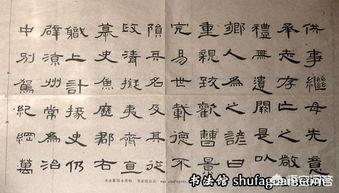 供事繼母先意
承志存亡之敬
禮無遺闕是以
鄉人為之諺曰
重親致歡曹景
完易世載德不
隕其名及其從
政清擬夷齊直
慕史魚歷郡右
職上計掾史仍
辟涼州常為治
中別駕紀綱萬
书法馆 shufaguan.c
悟空问答